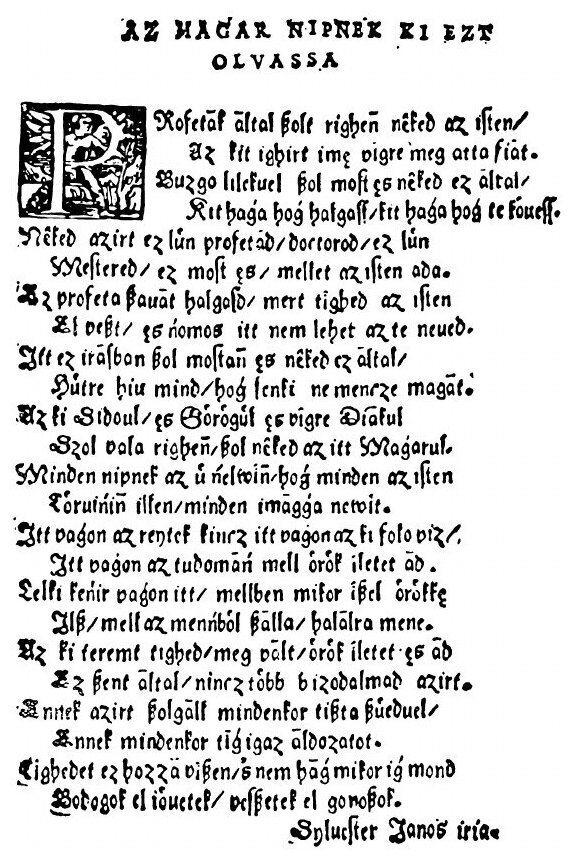 AZ MAGAR NIPNEK KI EZT
OLVASSA
PRofetāk āltal ßolt righeñ nêked az isten/
Az kit ighirt imę vigre meg atta fiāt.
Buzgo lilekuel ßol most ęs nêked ez āltal/
Kit haǵa hoǵ halgass/kit haǵa hoǵ te kȯuess.
Nêked azirt ez lűn profetād/doctorod/ez lűn
Mestered/ ez most ęs/ mellet az isten ada.
Ez profeta ßauāt halgasd/ mert tighed az isten
El veßt/ ęs ńomos itt nem lehet az te neued.
Itt ez irāsban ßol mostañ ęs nêked ez āltal/
Hűtre hiu mind/hoǵ senki ne mencze magāt.
Az ki Sidoul/ęs Gȯrȯgűl ęs vigre Diākul
Szol vala righeñ/ßol nêked az itt Maǵarul.
Minden nipnek az ű ńelwiñ/hoǵ minden az isten
Tȯruińiñ illen/minden imāǵǵa newit.
Itt vaǵon az reytek kincz itt vaǵon az ki folo viz/
Itt vaǵon az tudomāń mell ȯrȯk iletet ād.
Lelki keńir vaǵon itt/ mellben mikor ißel ȯrȯkkę
Ilß/mell az menńbȯl ßālla/halālra mene.
Az ki teremt tighed/meg vālt/ȯrȯk iletet ęs ād
Ez ßent āltal/nincz tȯbb bizodalmad azirt.
Annek azirt ßolgālt mindenkor tißta ßűuedуel/
Annek mindenkor tīǵ igaz āldozatot.
Tighedet ez hozzā vißen/s nem hāǵ mikor iǵ mond
Bodogok el iȯuetek/ veßßetek el gonoßok.
Syluester Janos iria.